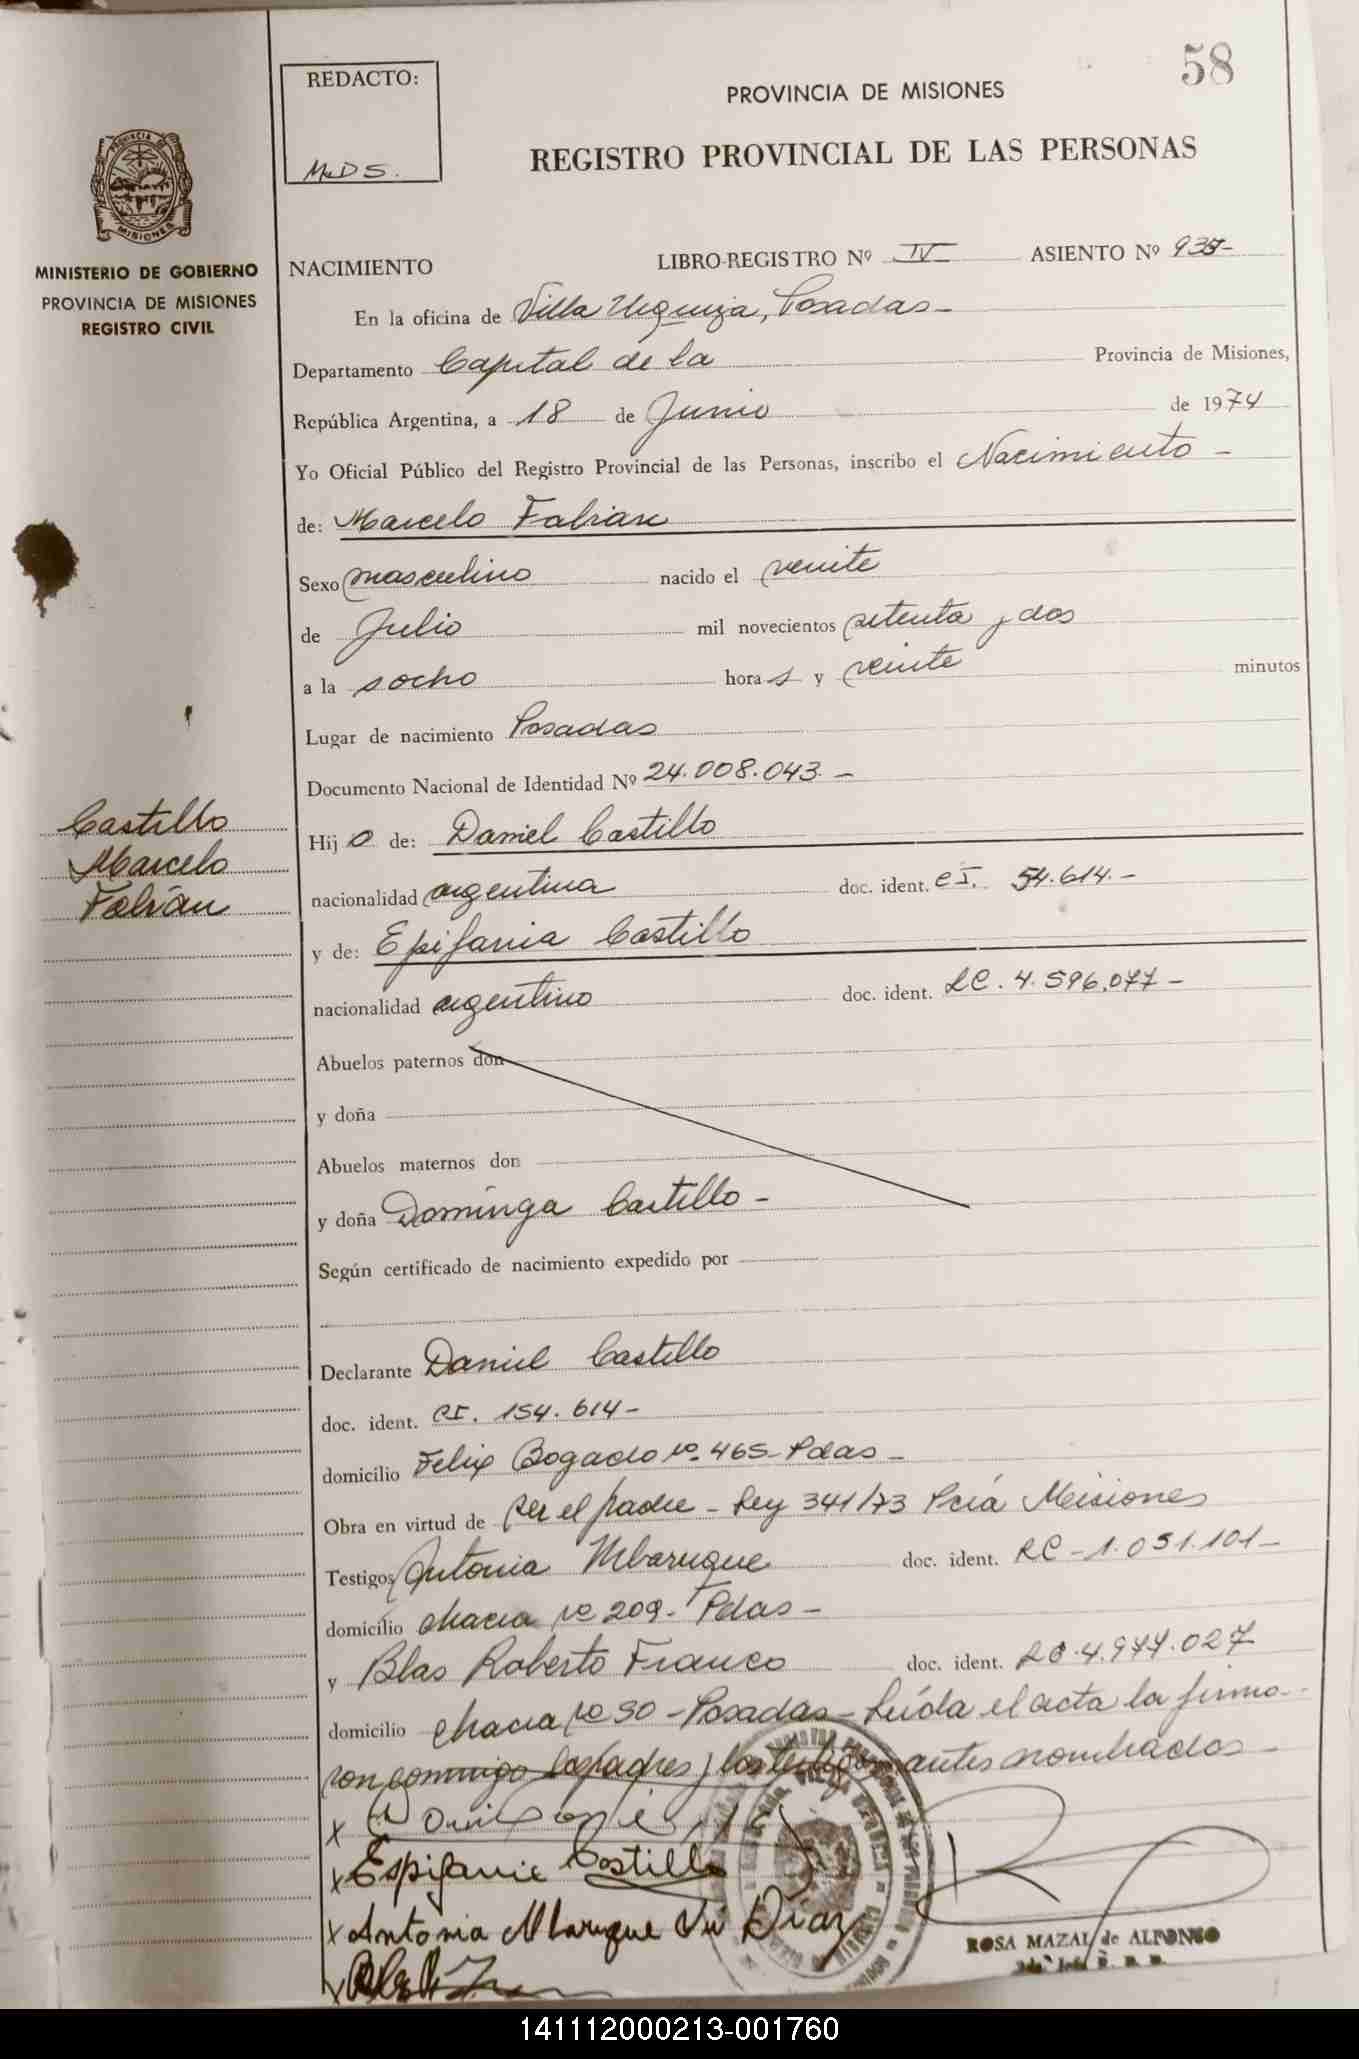 58
REDACTO:
PROVINCIA DE MISIONES
REGISTRO PROVINCIAL DE LAS PERSONAS
MINISTERIO DE GOBIERNO
PROVINCIA DE MISIONES
REGISTRO CIVIL
NACIMIENTO LIBRO-REGISTRO Nº IV ASIENTO Nº
En la oficina de Villa Urquiza, Posadas-
Departamento Capital de la Provincia de Misiones,
República Argentina, a 18 de Junio de 1974
Yo Oficial Público del Registro Provincial de las Personas, inscribo el Nacimiento -
de: Marcelo Fabian
Sexo masculino nacido el veinte
de Julio mil novecientos setenta y dos
a la s ocho hora s y veinte minutos
Lugar de nacimiento Posadas
Documento Nacional de Identidad Nº 24.008.043. -
Castillo
Marcelo
Fabián
Hij o de: Daniel Castillo
nacionalidad argentina doc. ident. CI. 54.614.-
y de: Epifania Castillo
nacionalidad argentino doc. ident. LC. 4.596.077-
Abuelos paternos don
y doña
Abuelos maternos don
y doña Dominga Castillo -
Según certificado de nacimiento expedido por
Declarante Daniel Castillo
doc. ident. CI. 154.614-
domicilio Felix Bogado no. 465 Pdas-
Obra en virtud de ser el padre - Ley 341/73 Pcia Misiones
Testigos Antonia Mbarugue doc. ident. LC-1.051.101-
domicilio chacra no 209- Pdas-
y Blas Roberto Franco doc. ident. 4.977.027
domicilio chacra no 50 - Posadas - Leída el acta la firma
con conmigo los padres y los testigos antes nombrados -
x
x Espifanie Castillo
x Antonia Mbarugue Diaz
x
ROSA MAZAL de ALFONSO
141112000213-001760